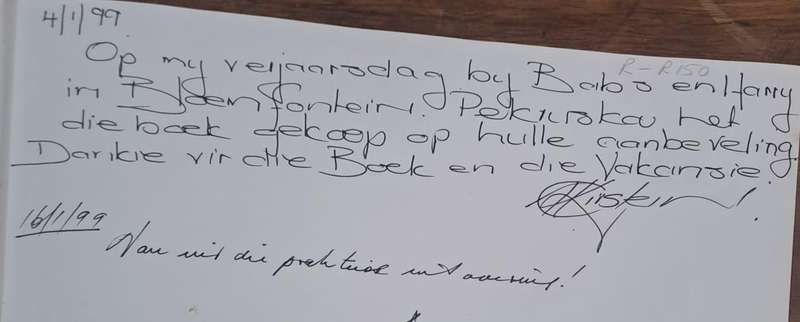 4/1/99
Op my verjaarsdag by Babs en Harry
R-R150
in Bloemfontein. het
die boek gekoop op hulle aanbeveling.
Dankie vir die Boek en die Vakansie!
Kirstein!
16/1/99
Nou uit die praktiese